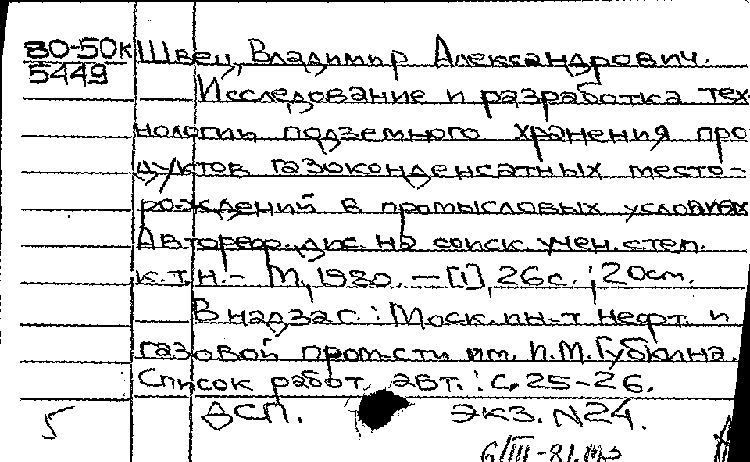 80-50к Швец, Владимир Александрович.
5449
Исследование и разработка тех-
нологии подземного хранения про
дуктов газоконденсатных место-
рождений в промысловых условиях
Автореф. дис. на соиск. учен. степ.
к.т.н. - М, 1980. — [1], 26с.; 20см.
В надзаг.: Моск. ин-т нефт. и
газовой пром-сти им. И.М. Губкина.
Список работ авт.: с. 25-26.
5 ДСП. экз. N24.
6/III-81.